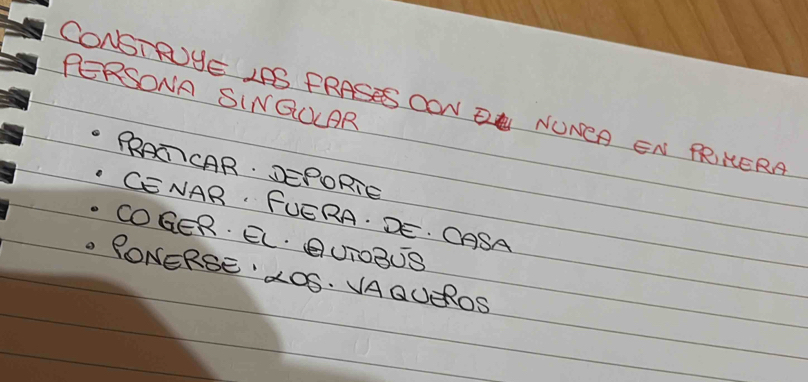 CONSTRUYE LAS FRASES CON NUNCA EN PRIMERA
PERSONA SINGULAR
• PRATICAR. DEPORTE
• CENAR. FUERA. DE. CASA
• COGER. EL. AUTOBÚS
• PONERSE. LOS. VAQUEROS